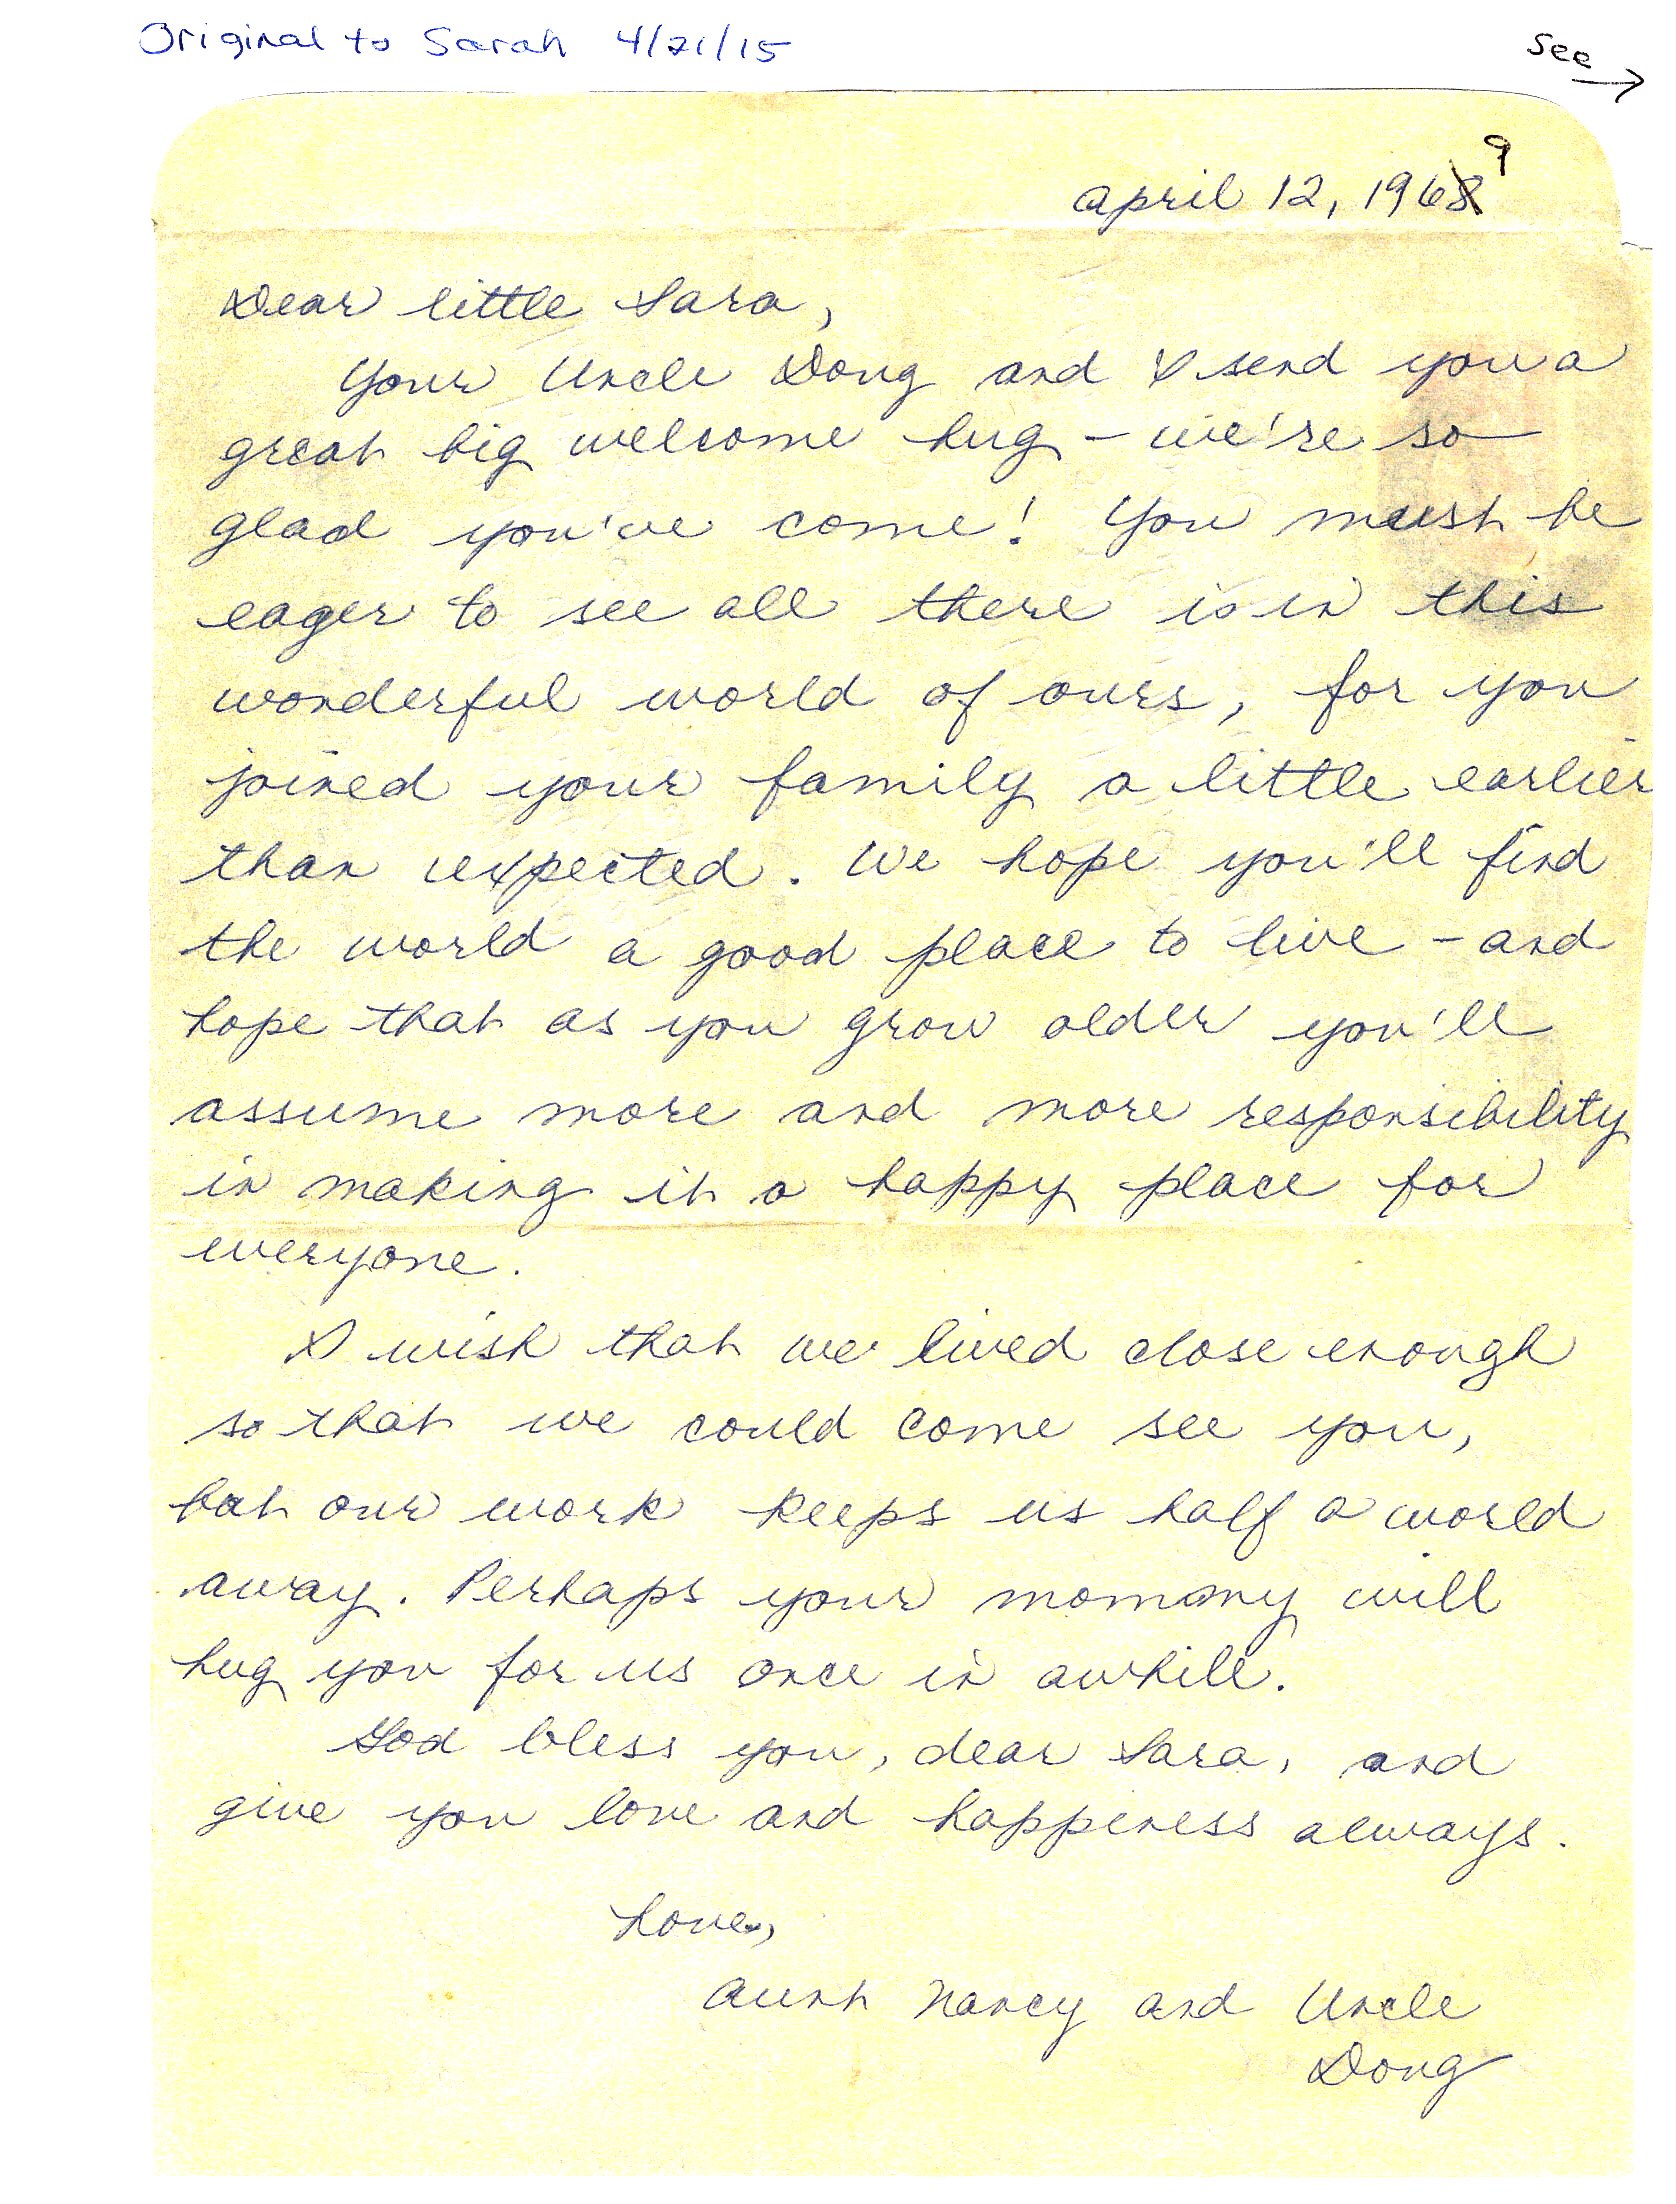 Original to Sarah 4/21/15
See →
9
April 12, 1968
Dear little Sara,
Your Uncle Doug and I send you a
great big welcome hug - we're so
glad you've come! You must be
eager to see all there is in this
wonderful world of ours, for you
joined your family a little earlier
than expected. We hope you'll find
the world a good place to live - and
hope that as you grow older you'll
assume more and more responsibility
in making it a happy place for
everyone.
I wish that we lived close enough
so that we could come see you,
but our work keeps us half a world
away. Perhaps your mommy will
hug you for us once in awhile.
God bless you, dear Sara, and
give you love and happiness always.
Love,
Aunt Nancy and Uncle
Doug